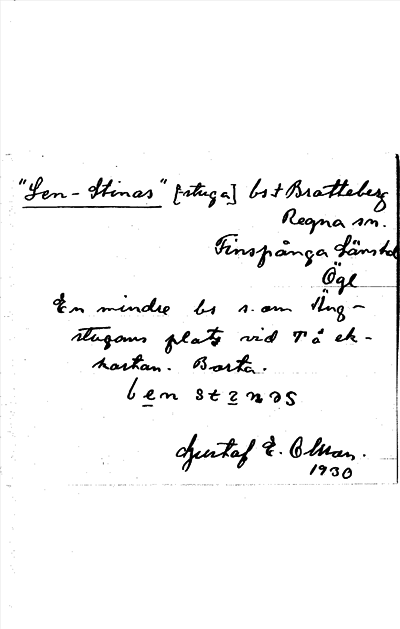 "Len-Stinas" [stuga] bs † Bratteberg
Regna sn.
Finspånga länshd
Ögl
En mindre bs s. om Äng-
stugans plats vid Tå ek-
kastan. Borta.
Gustaf E. Olsson.
1930